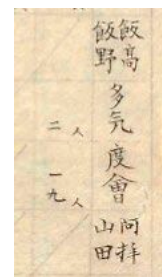 飯高
飯野
多気
度會
阿拝
山田
二人
一九人